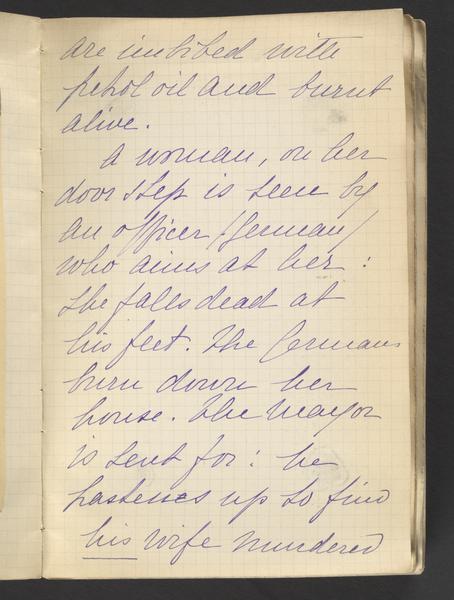 are imbibed with
petrol oil and burnt
alive.
A woman, on her
door step is seen by
an officer (German)
who aims at her :
she falls dead at
his feet. The Germans
burn down her
house. The Mayor
is sent for : he
hastenes up to find
his wife murdered